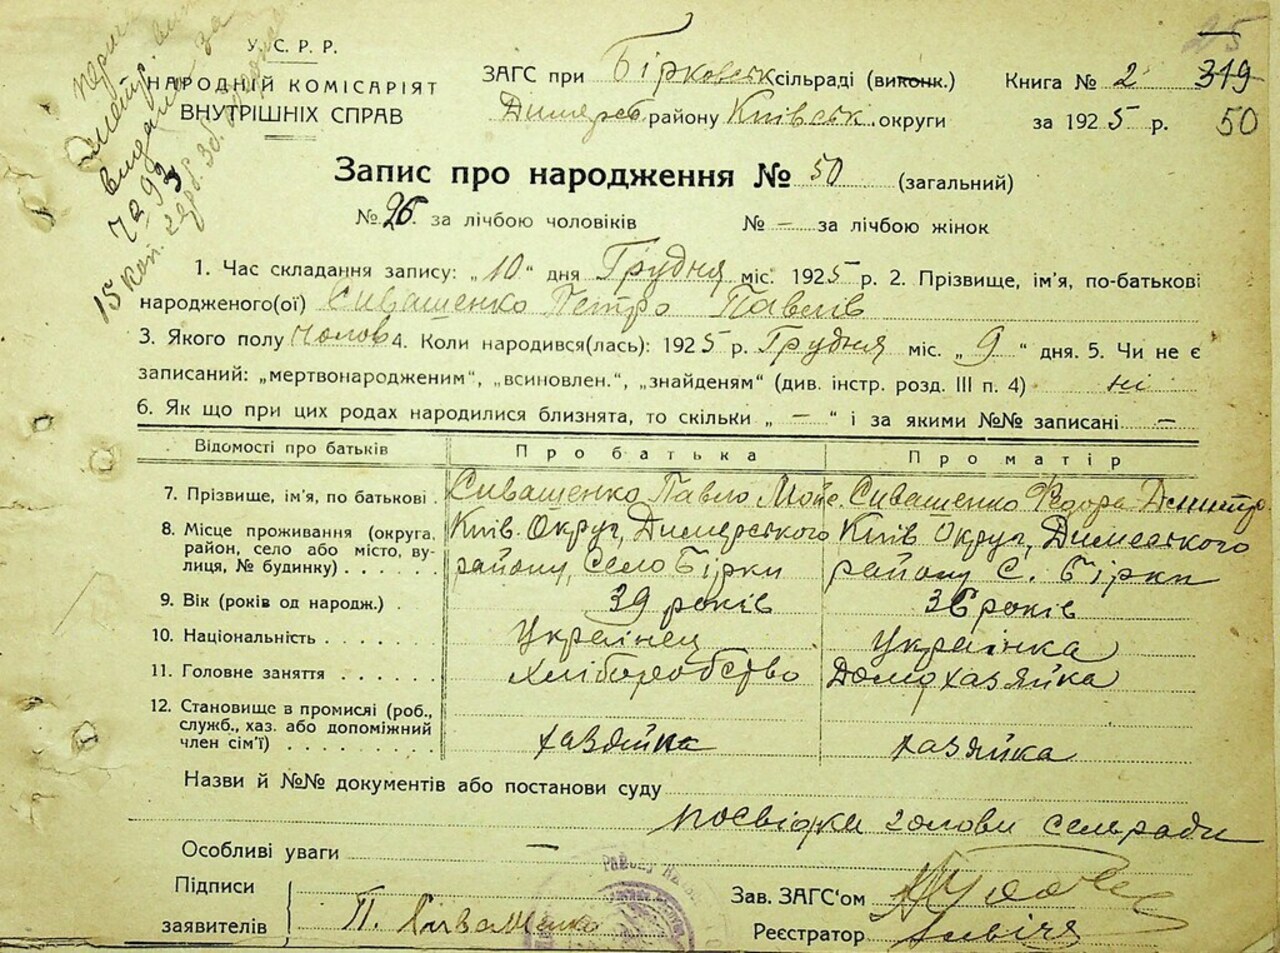 25
У. С. Р. Р.
НАРОДНІЙ КОМІСАРІЯТ
ВНУТРІШНІХ СПРАВ
ЗАГС при Бірковськ сільраді (виконк.)
Димерськ району Київськ. округи
Книга № 2 319
за 1925 р. 50
видана за
7293
15 коп.
Запис про народження № 50 (загальний)
№ 26. за лічбою чоловіків № — за лічбою жінок
1. Час складання запису: „10“ дня Грудня міс. 1925 р. 2. Прізвище, ім'я, по-батькові
народженого(ої) Сиващенко Петро Павлів
3. Якого полу Чолов 4. Коли народився(лась): 1925 р. Грудня міс. „9“ дня. 5. Чи не є
записаний: „мертвонародженим“, „всиновлен.“, „знайденям“ (див. інстр. розд. III п. 4) ні
6. Як що при цих родах народилися близнята, то скільки „—“ і за якими №№ записані —
Відомості про батьків Про батька Про матір
7. Прізвище, ім'я, по батькові. Сиващенко Павло Мойс. Сиващенко Федора Дмитр.
8. Місце проживання (округа, район, село або місто, вулиця, № будинку) . . . . .
Київ. Округи, Димерського району, Село Бірки
Київ Округи, Димерського району С. Бірки
9. Вік (років од народж.) . 39 років 36 років
10. Національність . . . . . . Українец Українка
11. Головне заняття . . . . . . хліборобство Домохазяйка
12. Становище в промислі (роб.,
служб., хаз. або допоміжний
член сім'ї) . . . . . . . . хазяйка хазяйка
Назви й №№ документів або постанови суду
посвідки голови сельради
Особливі уваги —
Підписи
заявителів П. Сиващенко
Зав. ЗАГС'ом
Реєстратор